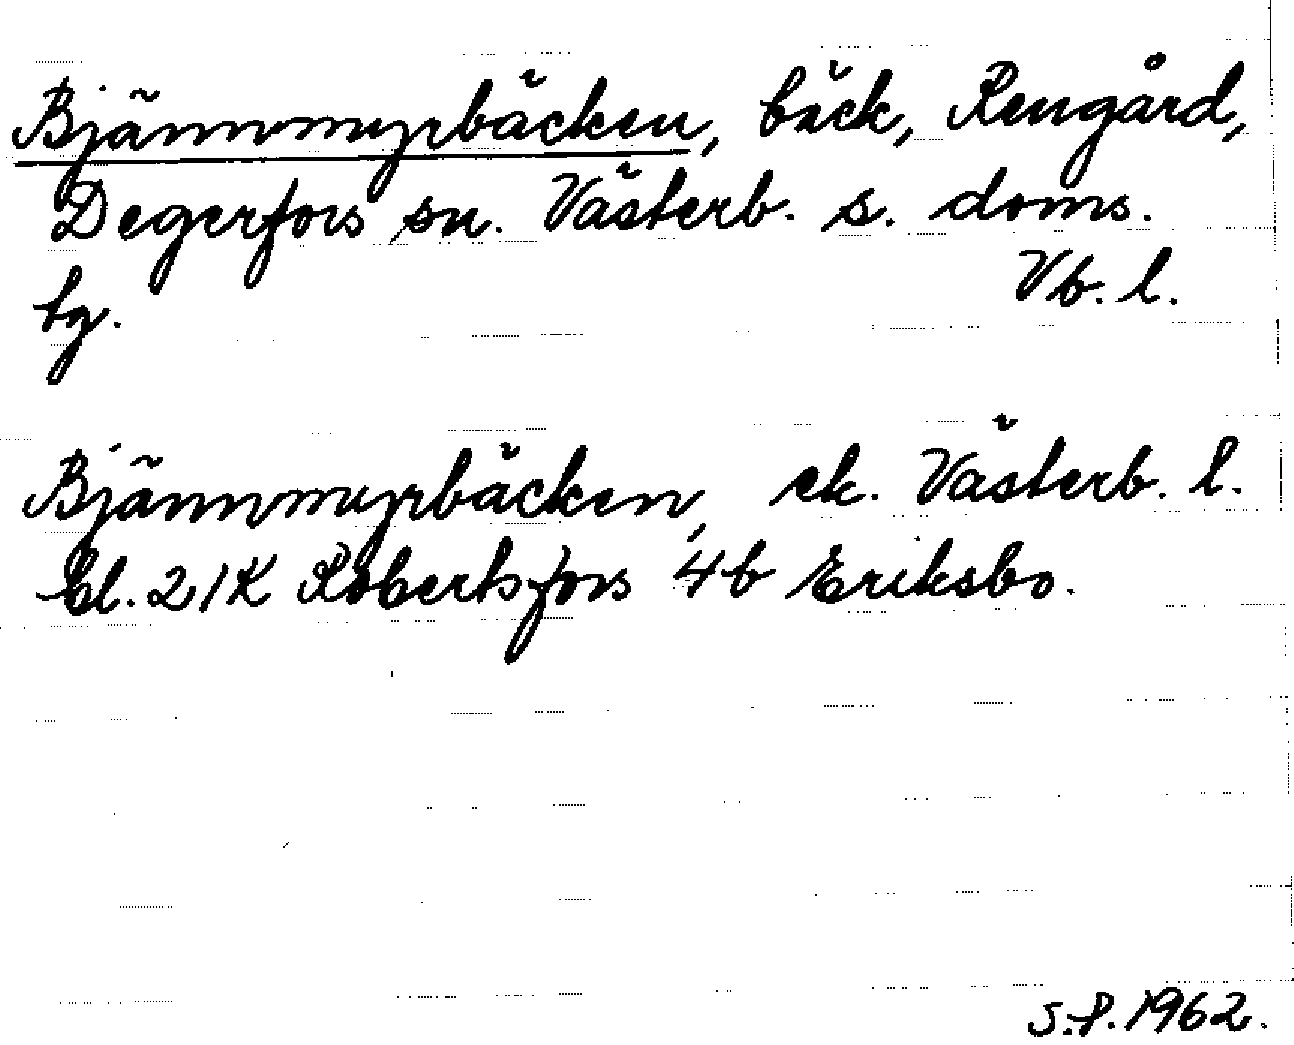 Bjännmyrbäcken, bäck, Rengård,
Degerfors sn. Västerb. s. doms.
bg. Vb. l.
Bjännmyrbäcken, ek. Västerb. l.
bl. 21K Robertsfors 4b Eriksbo.
S.P. 1962.